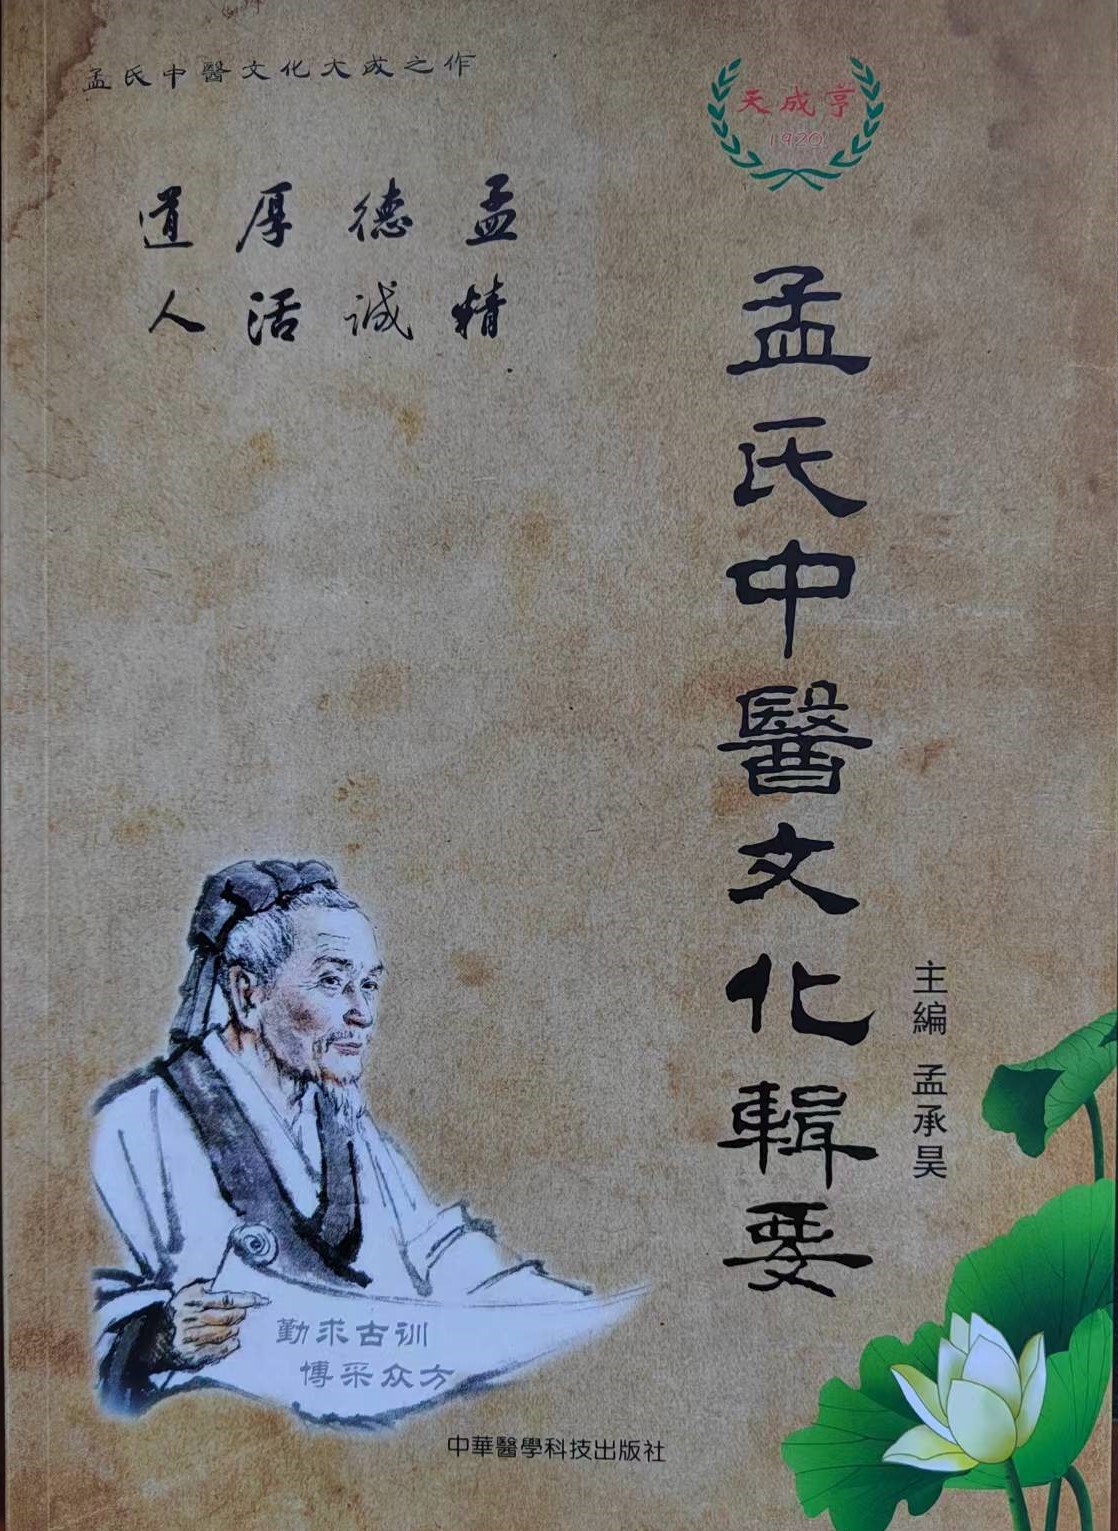 孟氏中醫文化大成之作
天成亨
1920
孟德厚道
精诚活人
孟氏中醫文化輯要
主編 孟承昊
勤求古训
博采众方
中華醫學科技出版社